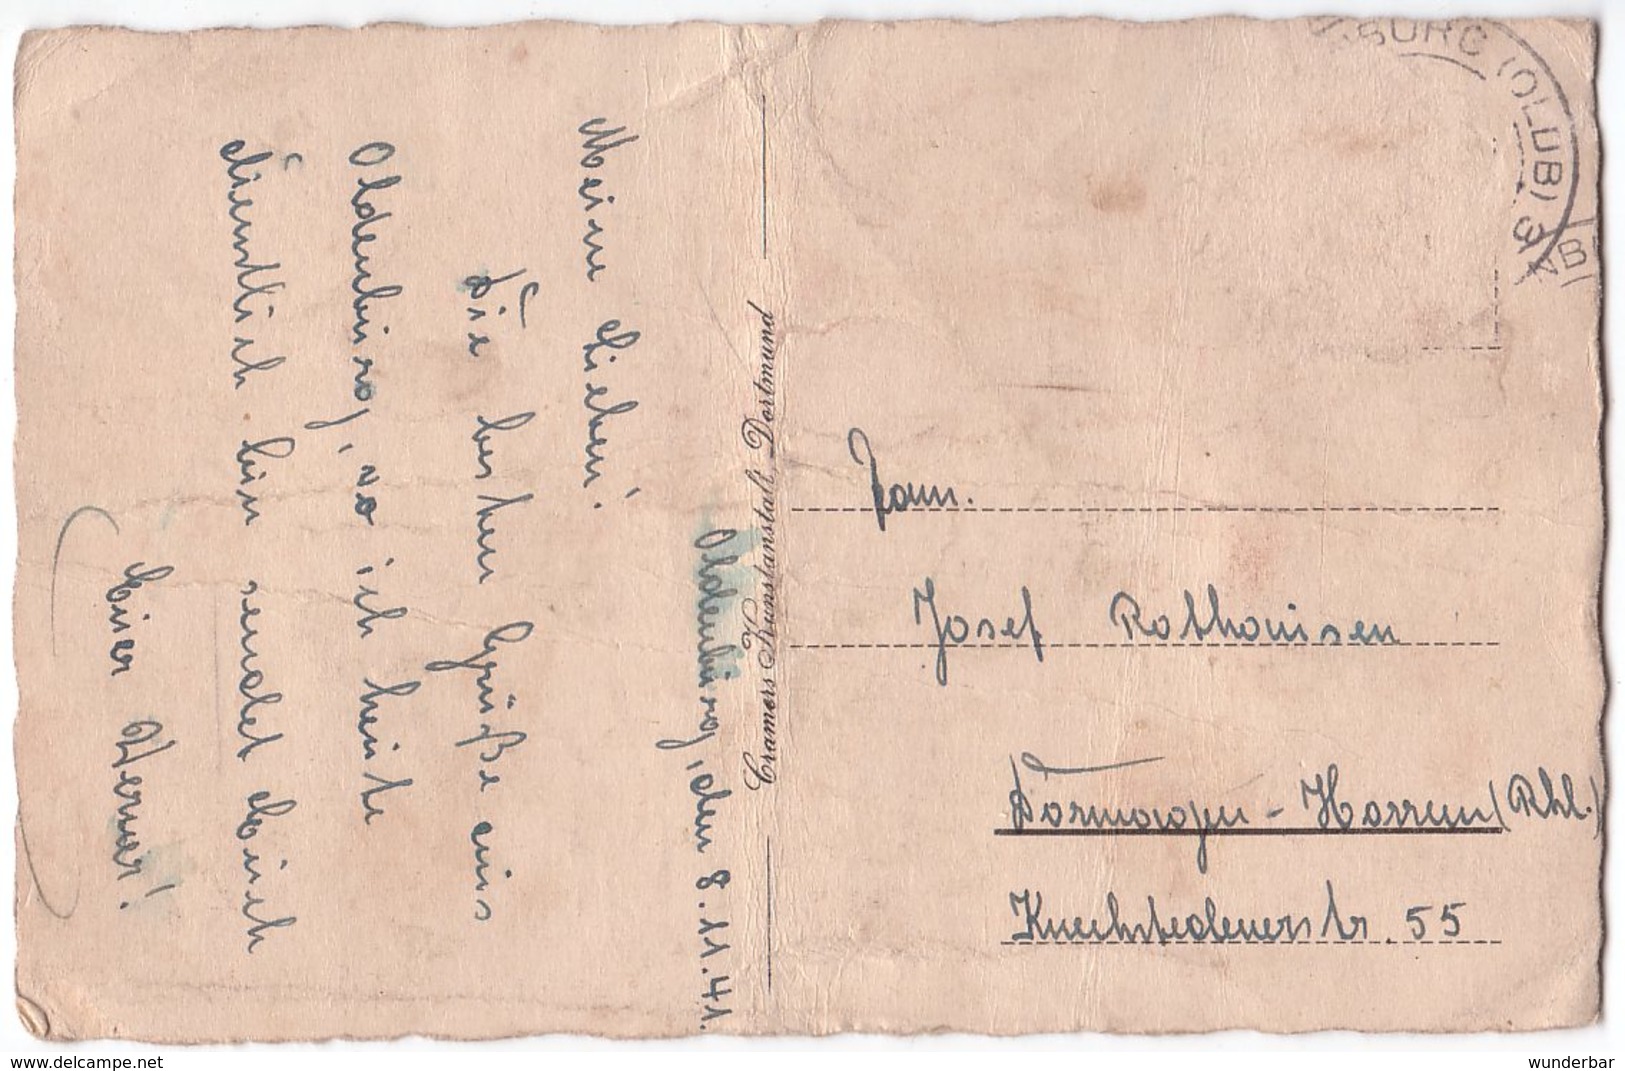 Oldenburg, den 8.11.41.
Meine Lieben!
Die besten Grüße aus
Oldenburg, wo ich heute
dienstlich bin sendet Euch
Euer Werner!
Cramers Kunstanstalt, Dortmund
(OLDB) 3
Fam.
Josef Rothausen
Dormagen - Horrem (Rhl.)
Knechstedenerstr. 55
www.delcampe.net
wunderbar